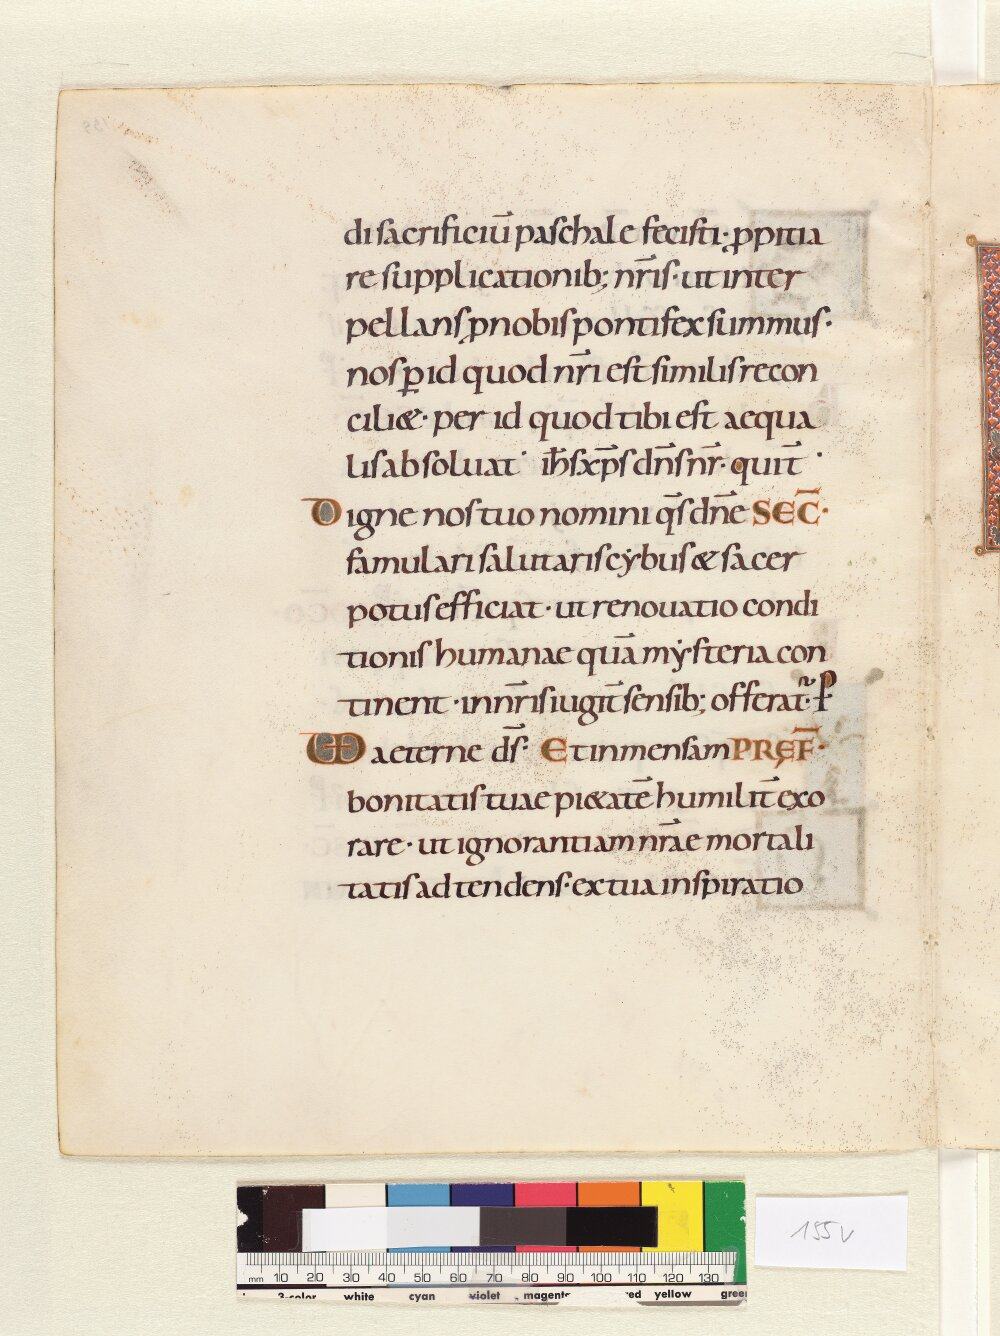 di sacrificiū paschale fecisti· ꝓpitia
re supplicationib; nr̄is· ut inter
pellans ꝓ nobis pontifex summus·
nos ꝑ id quod nr̄i est similis recon
ciliꝸ· per id quod tibi est aequa
lis absoluat· ih̄s xp̄s dn̄s nr̄· quit̄·
Digne nos tuo nomini q̄s dn̄e SEC̄·
famulari salutaris cẏbus & sacer
potus efficiat· ut renouatio condi
tionis humanae quā mẏsteria con
tinent· in nr̄is iugit̄ sensib; offerat̃· P
VD aeterne d̄s· Et inmensam PRĘF̄·
bonitatis tuae pi&atē humilit̄ exo
rare· ut ignorantiam nr̄ae mortali
tatis ad tendens· ex tua inspiratio
mm 10 20 30 40 50 60 70 80 90 100 110 120 130
3-color white cyan violet magenta red yellow green
155v